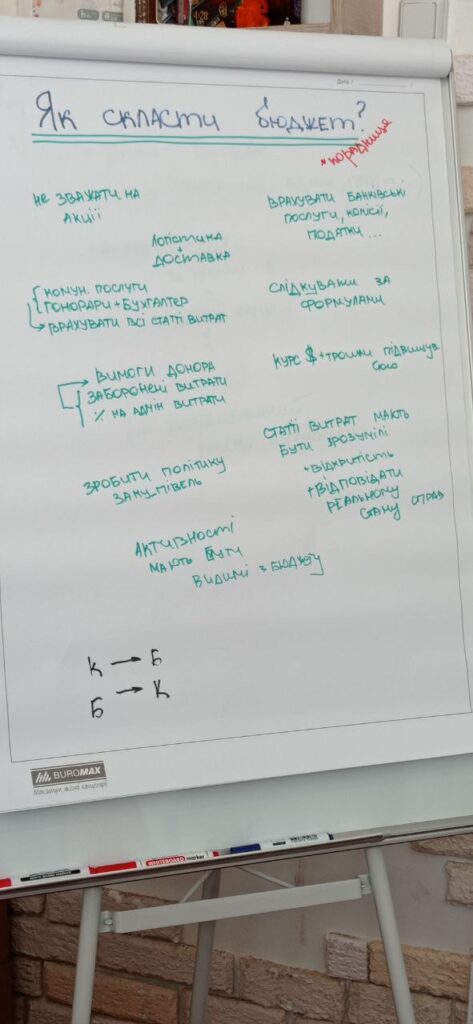 Як скласти бюджет?
*порадниця
не зважати на
акції
Врахувати банківські
послуги, комісії,
податки...
Логістика
+
доставка
комун. послуги
гонорари + бухгалтер
врахувати всі статті витрат
слідкувати за
формулами
вимоги донора
заборонені витрати
% на адмін витрати
курс $ + трошки підвищув
статті витрат мають
бути зрозумілі
+ відкритість
+ відповідати
реальному
стану справ
зробити політику
закупівель
активності
мають бути
видимі з бюджету
К → Б
Б → К
BUROMAX
WHITEBOARD marker